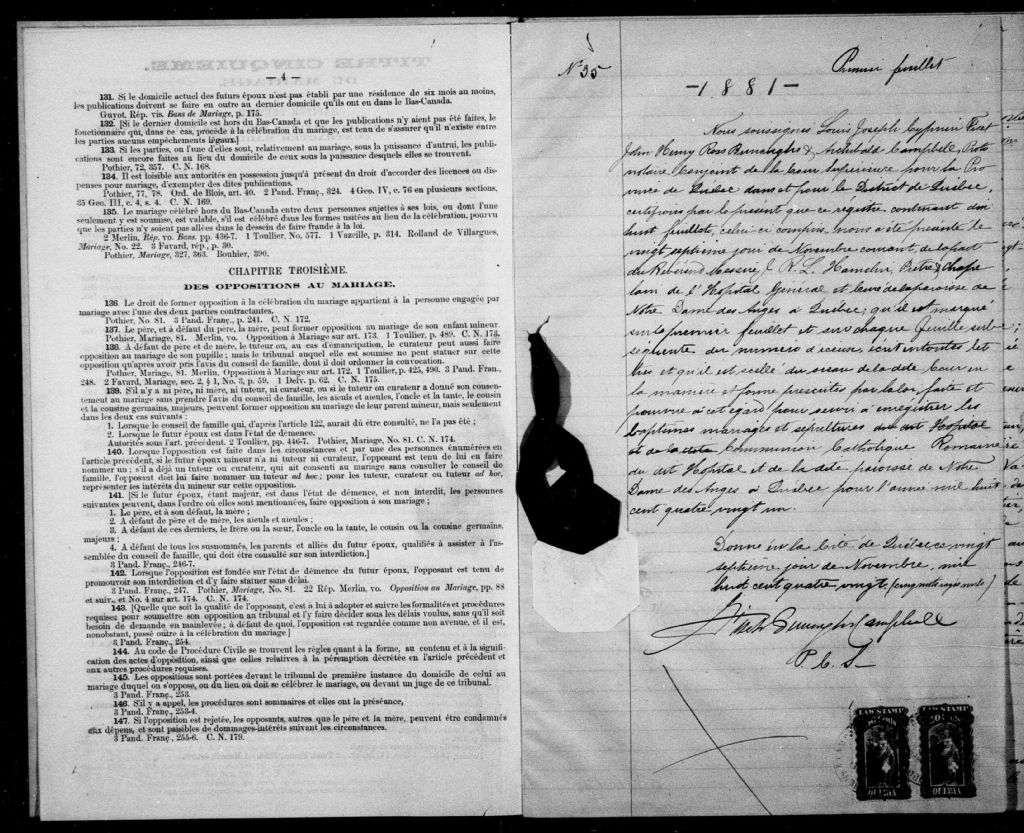 — 4 —
131. Si le domicile actuel des futurs époux n'est pas établi par une résidence de six mois au moins,
les publications doivent se faire en outre au dernier domicile qu'ils ont eu dans le Bas-Canada.
Guyot, Rép. vis. Bans de Mariage, p. 175.
132. [Si le dernier domicile est hors du Bas-Canada et que les publications n'y aient pas été faites, le
fonctionnaire qui, dans ce cas, procède à la célébration du mariage, est tenu de s'assurer qu'il n'existe entre
les parties aucuns empêchements légaux.]
133. Si les parties, ou l'une d'elles sont, relativement au mariage, sous la puissance d'autrui, les publi-
cations sont encore faites au lieu du domicile de ceux sous la puissance desquels elles se trouvent.
Pothier, 72, 357. C. N. 168.
134. Il est loisible aux autorités en possession jusqu'à présent du droit d'accorder les licences ou dis-
penses pour mariage, d'exempter des dites publications.
Pothier, 77, 78. Ord. de Blois, art. 40. 2 Pand. Franç., 324. 4 Geo. IV, c. 76 en plusieurs sections,
35 Geo. III, c. 4, s. 4. C. N. 169.
135. Le mariage célébré hors du Bas-Canada entre deux personnes sujettes à ses lois, ou dont l'une
seulement y est soumise, est valable, s'il est célébré dans les formes usitées au lieu de la célébration, pourvu
que les parties n'y soient pas allées dans le dessein de faire fraude à la loi.
2 Merlin, Rép. vo. Bans. pp. 436-7. 1 Toullier, No. 577. 1 Vazeille, p. 314. Rolland de Villargues,
Mariage, No. 22. 3 Favard, rép., p. 30.
Pothier, Mariage, 327, 363. Bouhier, 390.
CHAPITRE TROISIÈME.
DES OPPOSITIONS AU MARIAGE.
136. Le droit de former opposition à la célébration du mariage appartient à la personne engagée par
mariage avec l'une des deux parties contractantes.
Pothier, No. 81. 3 Pand. Franç., p. 241. C. N. 172.
137. Le père, et à défaut du père, la mère, peut former opposition au mariage de son enfant mineur.
Pothier, Mariage, 81. Merlin, vo. Opposition à Mariage sur art. 173. 1 Toullier, p. 489. C. N. 173.
138. A défaut de père et de mère, le tuteur ou, au cas d'émancipation, le curateur peut aussi faire
opposition au mariage de son pupille ; mais le tribunal auquel elle est soumise ne peut statuer sur cette
opposition qu'après avoir pris l'avis du conseil de famille, dont il doit ordonner la convocation.
Pothier, Mariage, 81. Merlin, Opposition à Mariage sur art. 172. 1 Toullier, p. 425, 490. 3 Pand. Fran.,
248. 2 Favard, Mariage, sec. 2, § 1, No. 3, p. 59. 1 Delv. p. 62. C. N. 175.
139. S'il n'y a ni père, ni mère, ni tuteur, ni curateur, ou si le tuteur ou curateur a donné son consen-
tement au mariage sans prendre l'avis du conseil de famille, les aïeuls et aïeules, l'oncle et la tante, le cousin
et la cousine germains, majeurs, peuvent former opposition au mariage de leur parent mineur, mais seulement
dans les deux cas suivants :
1. Lorsque le conseil de famille qui, d'après l'article 122, aurait dû être consulté, ne l'a pas été ;
2. Lorsque le futur époux est dans l'état de démence.
Autorités sous l'art. précédent. 2 Toullier, pp. 446-7. Pothier, Mariage, No. 81. C. N. 174.
140. Lorsque l'opposition est faite dans les circonstances et par une des personnes énumérées en
l'article précédent, si le futur époux mineur n'a ni tuteur ni curateur, l'opposant est tenu de lui en faire
nommer un ; s'il a déjà un tuteur ou curateur, qui ait consenti au mariage sans consulter le conseil de
famille, l'opposant doit lui faire nommer un tuteur ad hoc ; pour les tuteur, curateur ou tuteur ad hoc,
représenter les intérêts du mineur sur cette opposition.
141. [Si le futur époux, étant majeur, est dans l'état de démence, et non interdit, les personnes
suivantes peuvent, dans l'ordre où elles sont mentionnées, faire opposition à son mariage ;
1. Le père, et à son défaut, la mère ;
2. A défaut de père et de mère, les aïeuls et aïeules ;
3. A défaut de ces derniers, le frère ou la sœur, l'oncle ou la tante, le cousin ou la cousine germains,
majeurs ;
4. A défaut de tous les susnommés, les parents et alliés du futur époux, qualifiés à assister à l'as-
semblée du conseil de famille, qui doit être consulté sur son interdiction.]
3 Pand. Franç., 246-7.
142. Lorsque l'opposition est fondée sur l'état de démence du futur époux, l'opposant est tenu de
promouvoir son interdiction et d'y faire statuer sans délai.
3 Pand. Franç., 247. Pothier, Mariage, No. 81. 22 Rép. Merlin, vo. Opposition au Mariage, pp. 88
et suiv., et No. 4 sur art. 174. C. N. 174.
143. [Quelque soit la qualité de l'opposant, c'est à lui à adopter et suivre les formalités et procédures
requises pour soumettre son opposition au tribunal et l'y faire décider sous les délais voulus, sans qu'il soit
besoin de demande en mainlevée ; à défaut de quoi, l'opposition est regardée comme non avenue, et il est,
nonobstant, passé outre à la célébration du mariage ]
3 Pand. Franç., 254.
144. Au code de Procédure Civile se trouvent les règles quant à la forme, au contenu et à la signifi-
cation des actes d'opposition, ainsi que celles relatives à la péremption décrétée en l'article précédent et
aux autres procédures requises.
145. Les oppositions sont portées devant le tribunal de première instance du domicile de celui au
mariage duquel on s'oppose, ou du lieu où doit se célébrer le mariage, ou devant un juge de ce tribunal.
3 Pand. Franç., 253.
146. S'il y a appel, les procédures sont sommaires et elles ont la préséance,
3 Pand. Franç., 253-4.
147. Si l'opposition est rejetée, les opposants, autres que le père et la mère, peuvent être condamnés
aux dépens, et sont passibles de dommages-intérêts suivant les circonstances.
3 Pand. Franç., 255-6. C. N. 179.
No 35
Premier feuillet
—1881—
Nous soussignés Louis Joseph Cyprien Fiset
John Henry Ross Burroughs & Archibald Campbell, Proto
notaire Conjoint de la Cour Supérieure pour la Pro
vince de Québec dans et pour le District de Québec,
certifions par le présent que ce registre contenant dix
huit feuillets, celui-ci compris, nous a été présenté le
vingt septième jour de Novembre courant, de la part
du Révérend Messire, R. L. Hamelin, Prêtre & Chape
lain de l'Hopital Général et Curé de la paroisse de
Notre Dame des Anges à Québec; qu'il est marqué
sur le premier feuillet et sur chaque feuille sub
séquente du numéro d'icelui, écrit en toutes let
tres et qu'il est scellé du sceau de la dite Cour en
la manière et forme prescrites par la loi, faite et
pourvue à cet égard, pour servir à enregistrer les
baptêmes mariages et sépultures du dit Hopital
et de la Communion Catholique Romaine
du dit Hopital et de la dite paroisse de Notre
Dame des Anges à Québec pour l'année mil huit
cent quatre vingt un.
Donné en la Cité de Québec ce vingt
septième jour de Novembre, mil
huit cent quatre vingt, (cinq mots rayés nuls)
Fiset Burroughs Campbell
P. C. S.
LAW STAMP
LAW STAMP
QUEBEC
QUEBEC